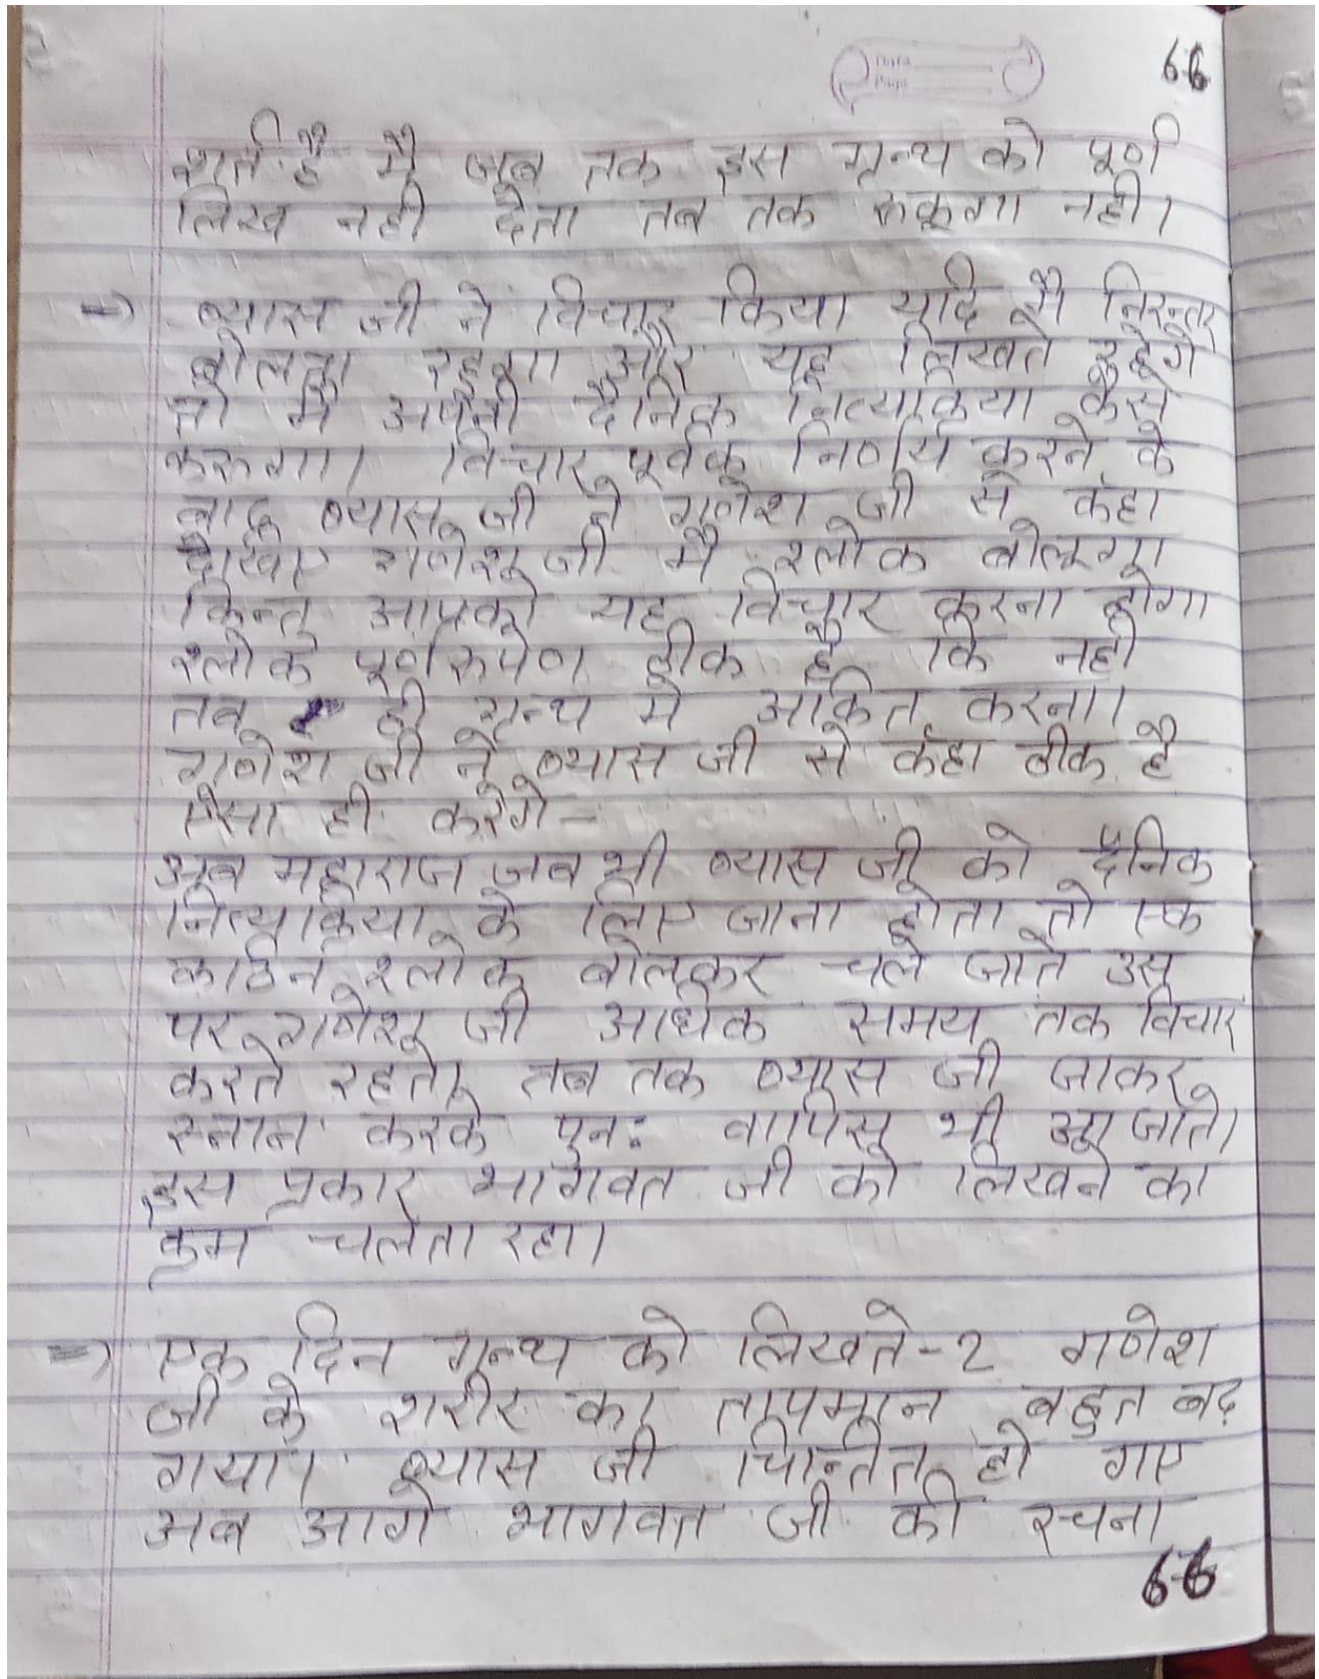 66
शर्त है मै जब तक इस ग्रन्थ को पूर्ण
लिख नही देता तब तक रूकूगा नही।
=> व्यास जी ने विचार किया यदि मै निरन्तर
बोलता रहूगा और यह लिखते रहेगे
तो मै अपनी दैनिक नित्यक्रिया कैसे
करूगा। विचार पूर्वक निर्णय करने के
बाद व्यास जी ने गणेश जी से कहा
देखिए गणेश जी मै श्लोक बोलूगा
किन्तु आपको यह विचार करना होगा
श्लोक पूर्णरूपेण ठीक है कि नही
तब ही ग्रन्थ मे अंकित करना।
गणेश जी ने व्यास जी से कहा ठीक है
ऐसा ही करेगे-
अब महाराज जब भी व्यास जी को दैनिक
नित्यक्रिया के लिए जाना होता तो एक
कठिन श्लोक बोलकर चले जाते उस
पर गणेश जी अधिक समय तक विचार
करते रहते। तब तक व्यास जी जाकर
स्नान करके पुनः वापिस भी आ जाते।
इस प्रकार भागवत जी को लिखने का
क्रम चलता रहा।
=> एक दिन ग्रन्थ को लिखते-2 गणेश
जी के शरीर का तापमान बहुत बढ़
गया। व्यास जी चिन्तित हो गए
अब आगे भागवत जी की रचना
66